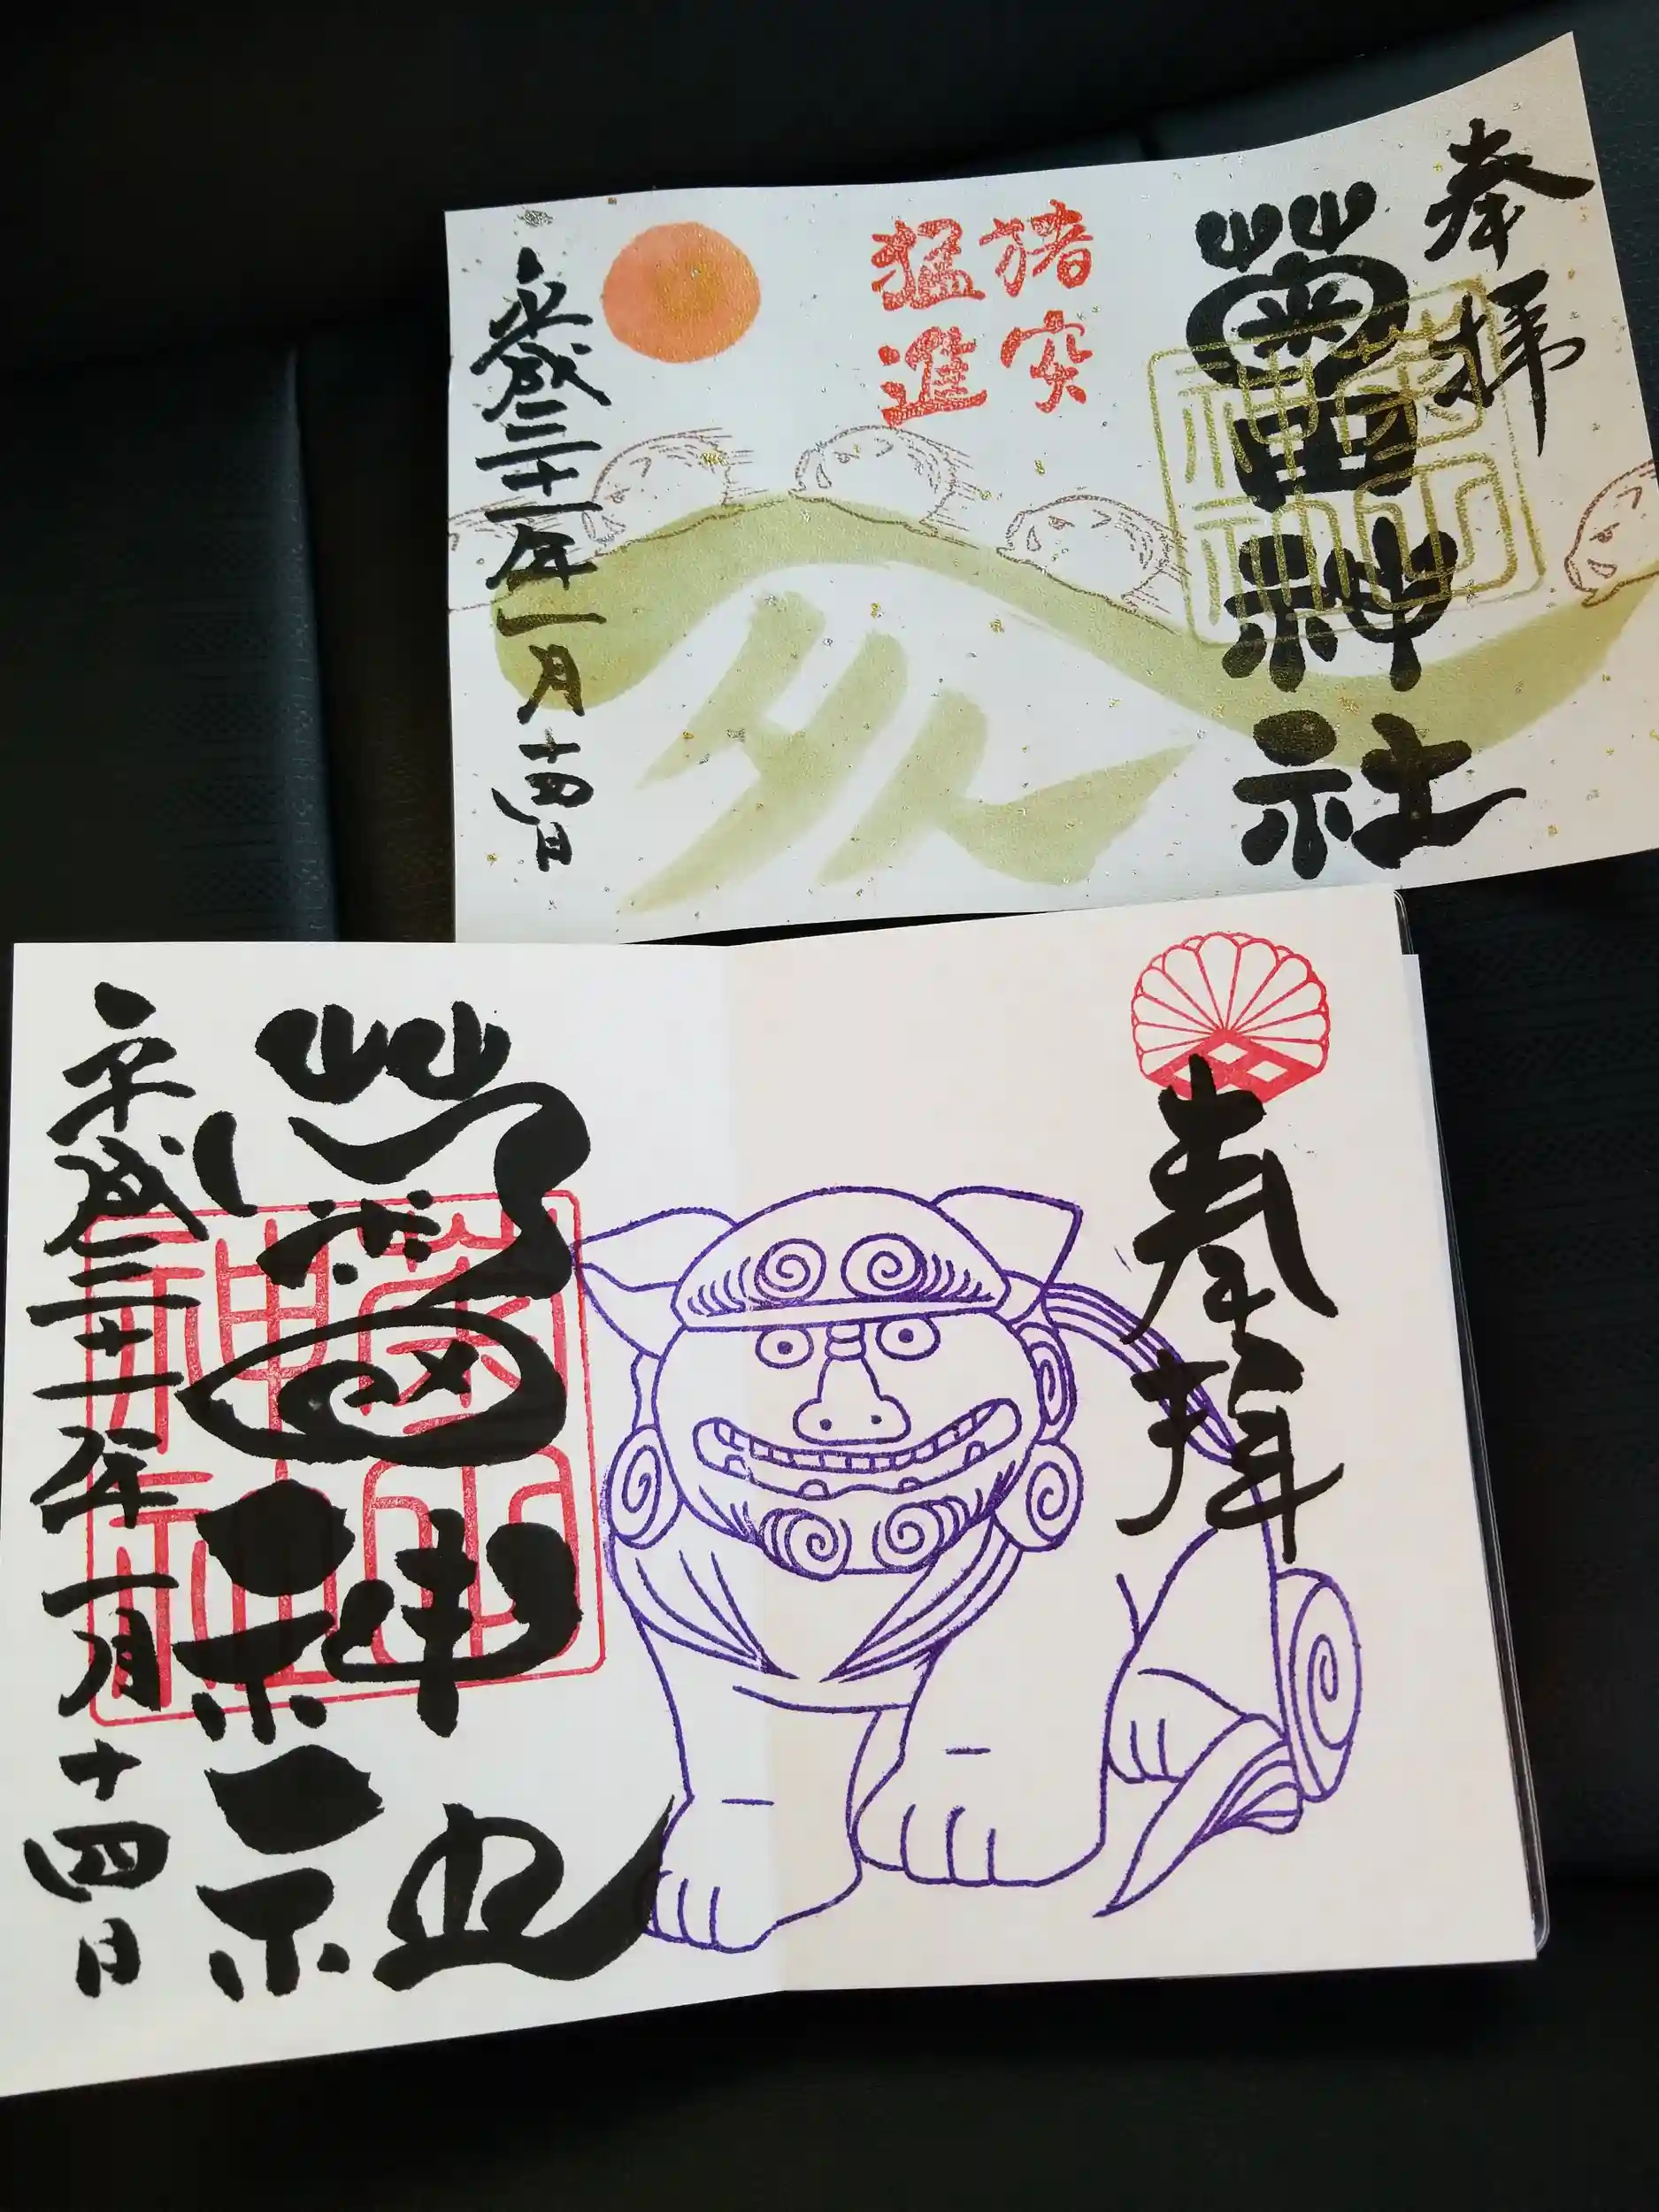 奉拝
菊田神社
猪突
猛進
亥
平成三十一年一月十四日
奉拝
菊田神社
平成三十一年一月十四日